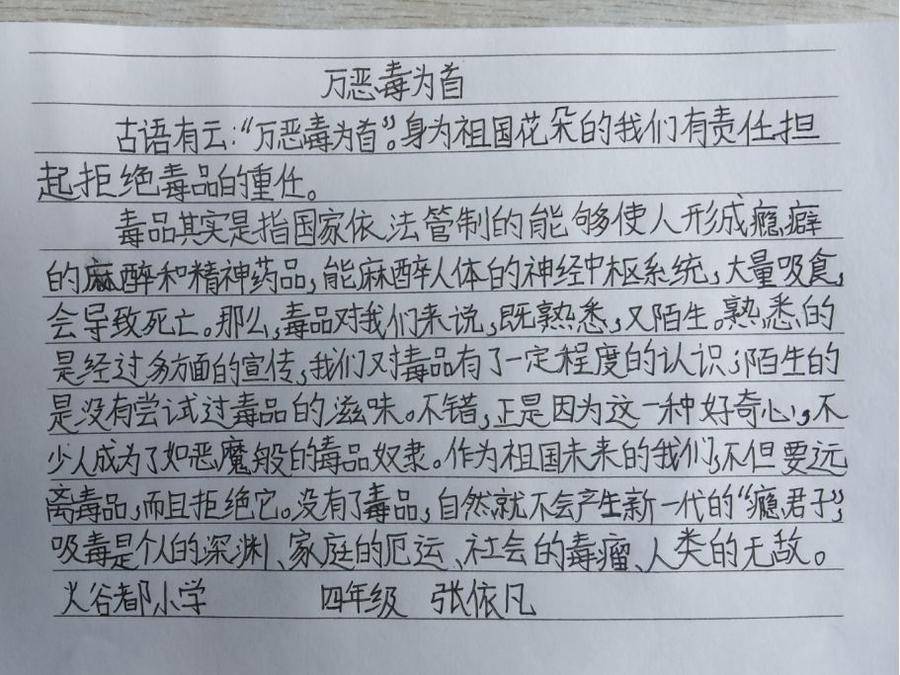 万恶毒为首
古语有云:“万恶毒为首”。身为祖国花朵的我们有责任担
起拒绝毒品的重任。
毒品其实是指国家依法管制的能够使人形成瘾癖
的麻醉和精神药品,能麻醉人体的神经中枢系统,大量吸食,
会导致死亡。那么,毒品对我们来说,既熟悉,又陌生。熟悉的
是经过多方面的宣传,我们又对毒品有了一定程度的认识;陌生的
是没有尝试过毒品的滋味。不错,正是因为这一种好奇心,不
少人成为了如恶魔般的毒品奴隶。作为祖国未来的我们,不但要远
离毒品,而且拒绝它。没有了毒品,自然就不会产生新一代的“瘾君子”,
吸毒是个人的深渊、家庭的厄运、社会的毒瘤、人类的无敌。
火谷都小学 四年级 张依凡